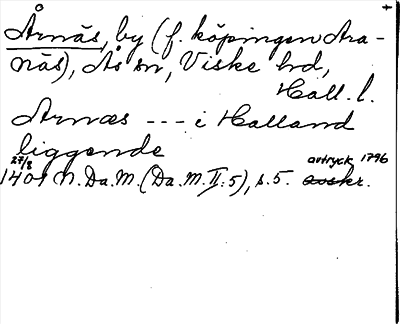 Årnäs, by (f. köpingen Ara-
näs), Ås sn, Viske hd,
Hall. l.
Arnæs --- i Halland
liggende
27/8 avtryck 1796
1409 N. Da. M. (Da. M. II: 5), s. 5. avskr.